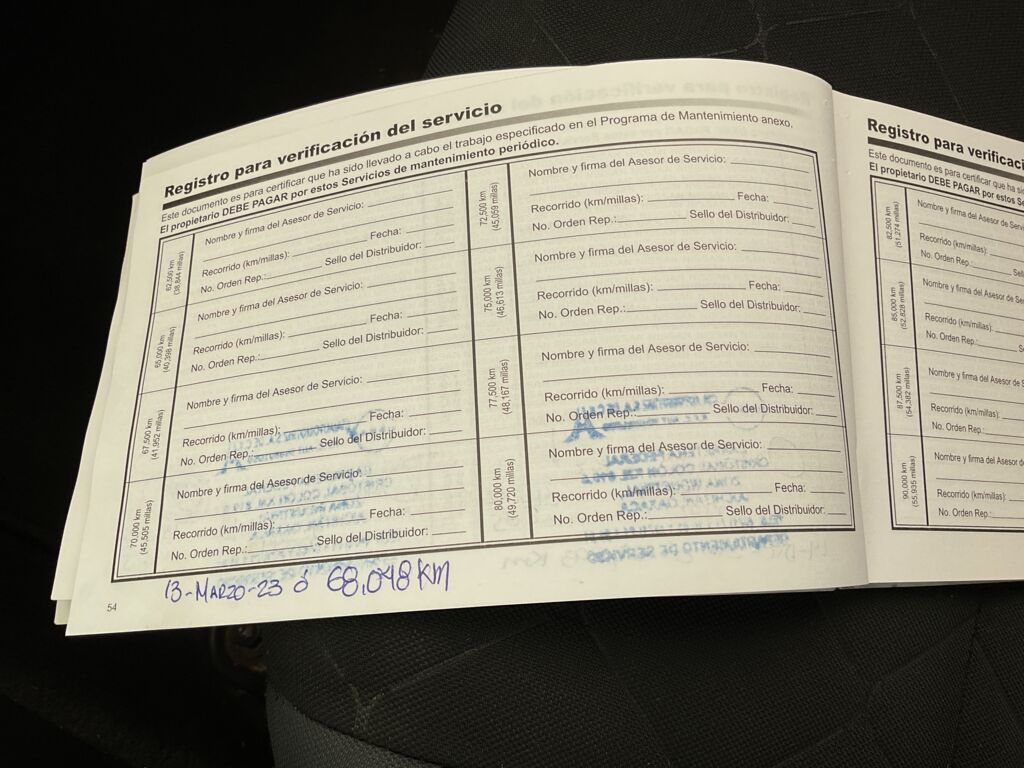 Registro para verificación del servicio
Este documento es para certificar que ha sido llevado a cabo el trabajo especificado en el Programa de Mantenimiento anexo.
El propietario DEBE PAGAR por estos Servicios de mantenimiento periódico.
62,500 km
(38,844 millas)
Nombre y firma del Asesor de Servicio:
Recorrido (km/millas): Fecha:
No. Orden Rep.: Sello del Distribuidor:
65,000 km
(40,398 millas)
Nombre y firma del Asesor de Servicio:
Recorrido (km/millas): Fecha:
No. Orden Rep.: Sello del Distribuidor:
67,500 km
(41,952 millas)
Nombre y firma del Asesor de Servicio:
Recorrido (km/millas): Fecha:
No. Orden Rep.: Sello del Distribuidor:
70,000 km
(45,505 millas)
Nombre y firma del Asesor de Servicio:
Recorrido (km/millas): Fecha:
No. Orden Rep.: Sello del Distribuidor:
72,500 km
(45,059 millas)
Nombre y firma del Asesor de Servicio:
Recorrido (km/millas): Fecha:
No. Orden Rep.: Sello del Distribuidor:
75,000 km
(46,613 millas)
Nombre y firma del Asesor de Servicio:
Recorrido (km/millas): Fecha:
No. Orden Rep.: Sello del Distribuidor:
77,500 km
(48,167 millas)
Nombre y firma del Asesor de Servicio:
Recorrido (km/millas): Fecha:
No. Orden Rep.: Sello del Distribuidor:
80,000 km
(49,720 millas)
Nombre y firma del Asesor de Servicio:
Recorrido (km/millas): Fecha:
No. Orden Rep.: Sello del Distribuidor:
13-MARZO-23 ó 68,048 KM
54
Registro para verificaci
Este documento es para certificar que ha si
El propietario DEBE PAGAR por estos Se
82,500 km
(51,274 millas)
Nombre y firma del Asesor de Serv
Recorrido (km/millas):
No. Orden Rep.: Sel
85,000 km
(52,828 millas)
Nombre y firma del Asesor de Se
Recorrido (km/millas):
No. Orden Rep.: S
87,500 km
(54,382 millas)
Nombre y firma del Asesor de S
Recorrido (km/millas):
No. Orden Rep.:
90,000 km
(55,935 millas)
Nombre y firma del Asesor d
Recorrido (km/millas):
No. Orden Rep.: